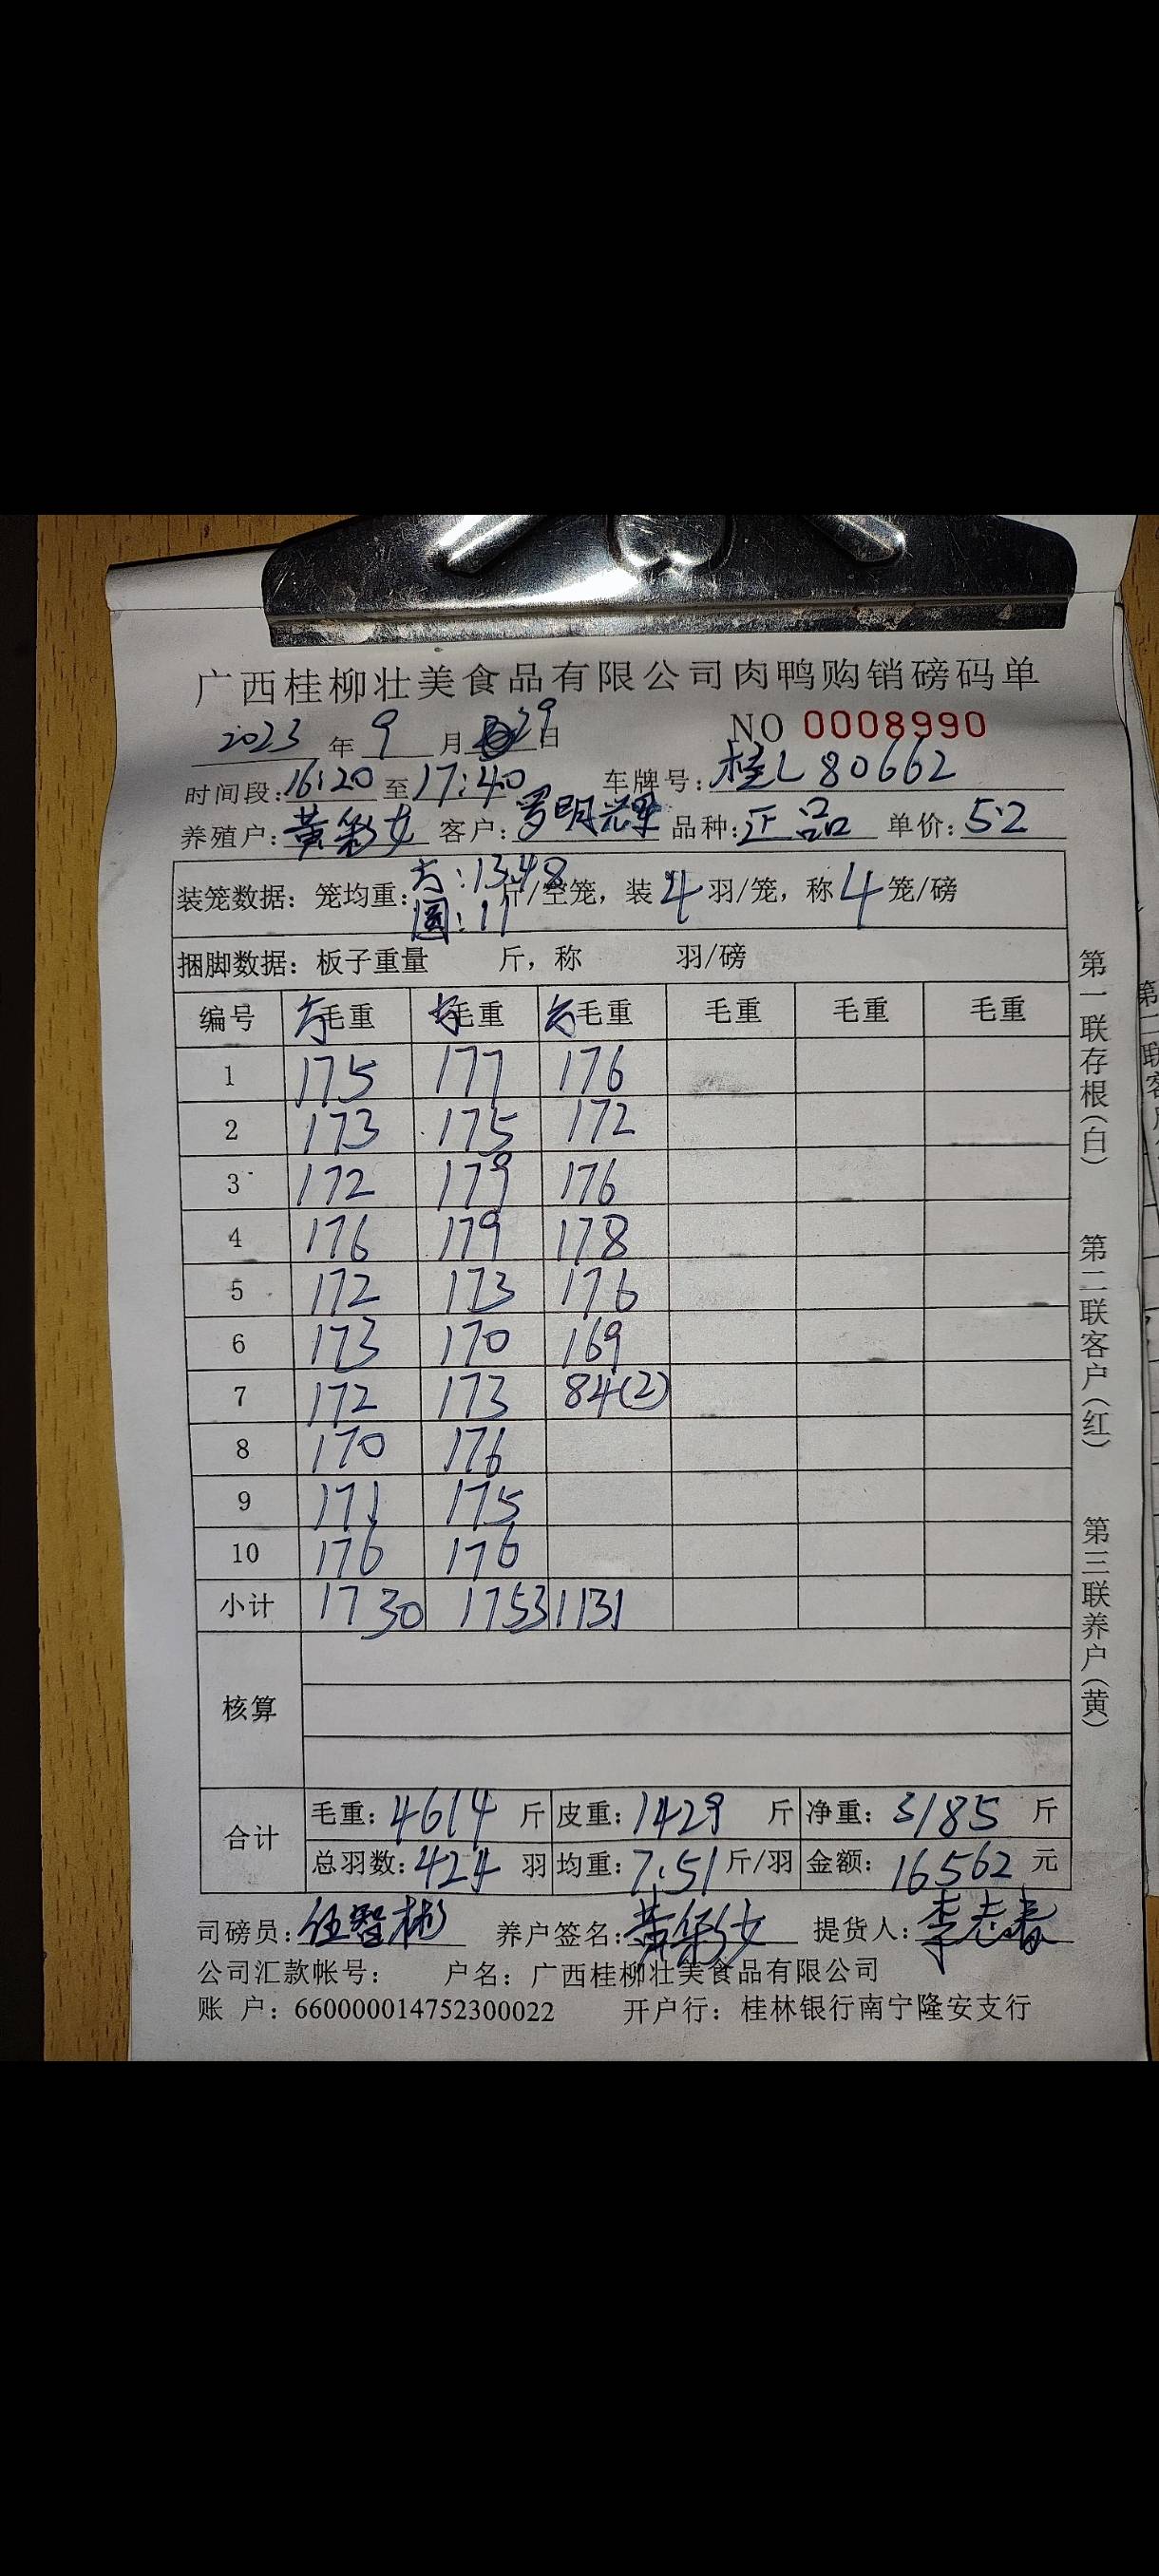 广西桂柳壮美食品有限公司肉鸭购销磅码单
2023 年 9 月 29 日 NO 0008990
时间段:16:20 至 17:40 车牌号:桂L80662
养殖户:黄彩女 客户:罗明辉 品种:正品 单价:5.2
装笼数据：笼均重:方:13.48 圆:11 斤/空笼，装4羽/笼，称4笼/磅
捆脚数据：板子重量 斤，称 羽/磅
编号 方毛重 方毛重 方毛重 毛重 毛重 毛重
1 175 177 176
2 173 175 172
3 172 179 176
4 176 179 178
5 172 173 176
6 173 170 169
7 172 173 84(2)
8 170 176
9 171 175
10 176 176
小计 1730 1753 1131
核算
合计 毛重：4614 斤 皮重：1429 斤 净重：3185 斤
总羽数：424 羽 均重：7.51 斤/羽 金额：16562 元
司磅员：伍智彬 养户签名：黄彩女 提货人：李志春
公司汇款帐号： 户名：广西桂柳壮美食品有限公司
账 户：660000014752300022 开户行：桂林银行南宁隆安支行
第一联存根（白） 第二联客户（红） 第三联养户（黄）